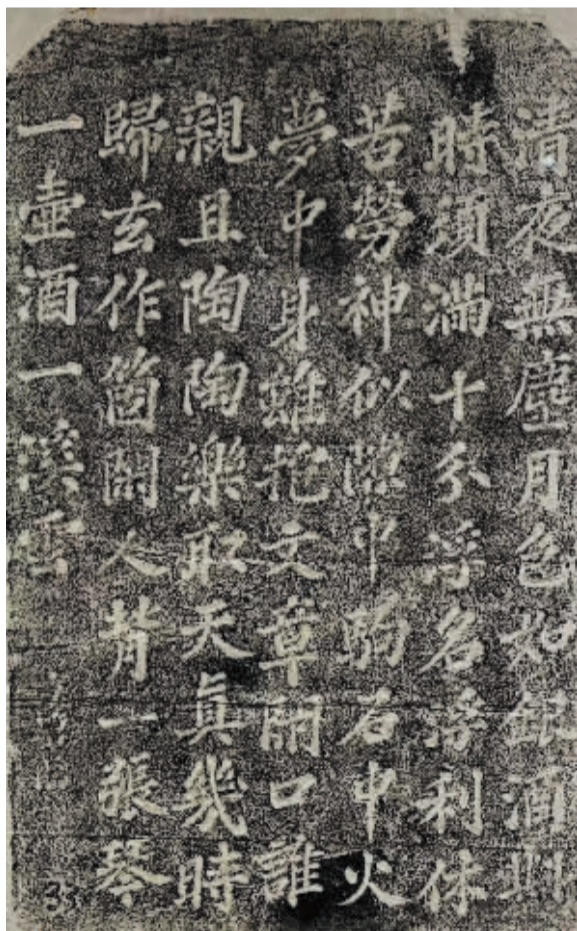 清夜無塵月色如銀酒斟
時須滿十分浮名浮利休
苦勞神似隙中駒石中火
夢中身雖抱文章開口誰
親且陶陶樂取天真幾時
歸玄作箇閑人背一張琴
一壺酒一溪雲